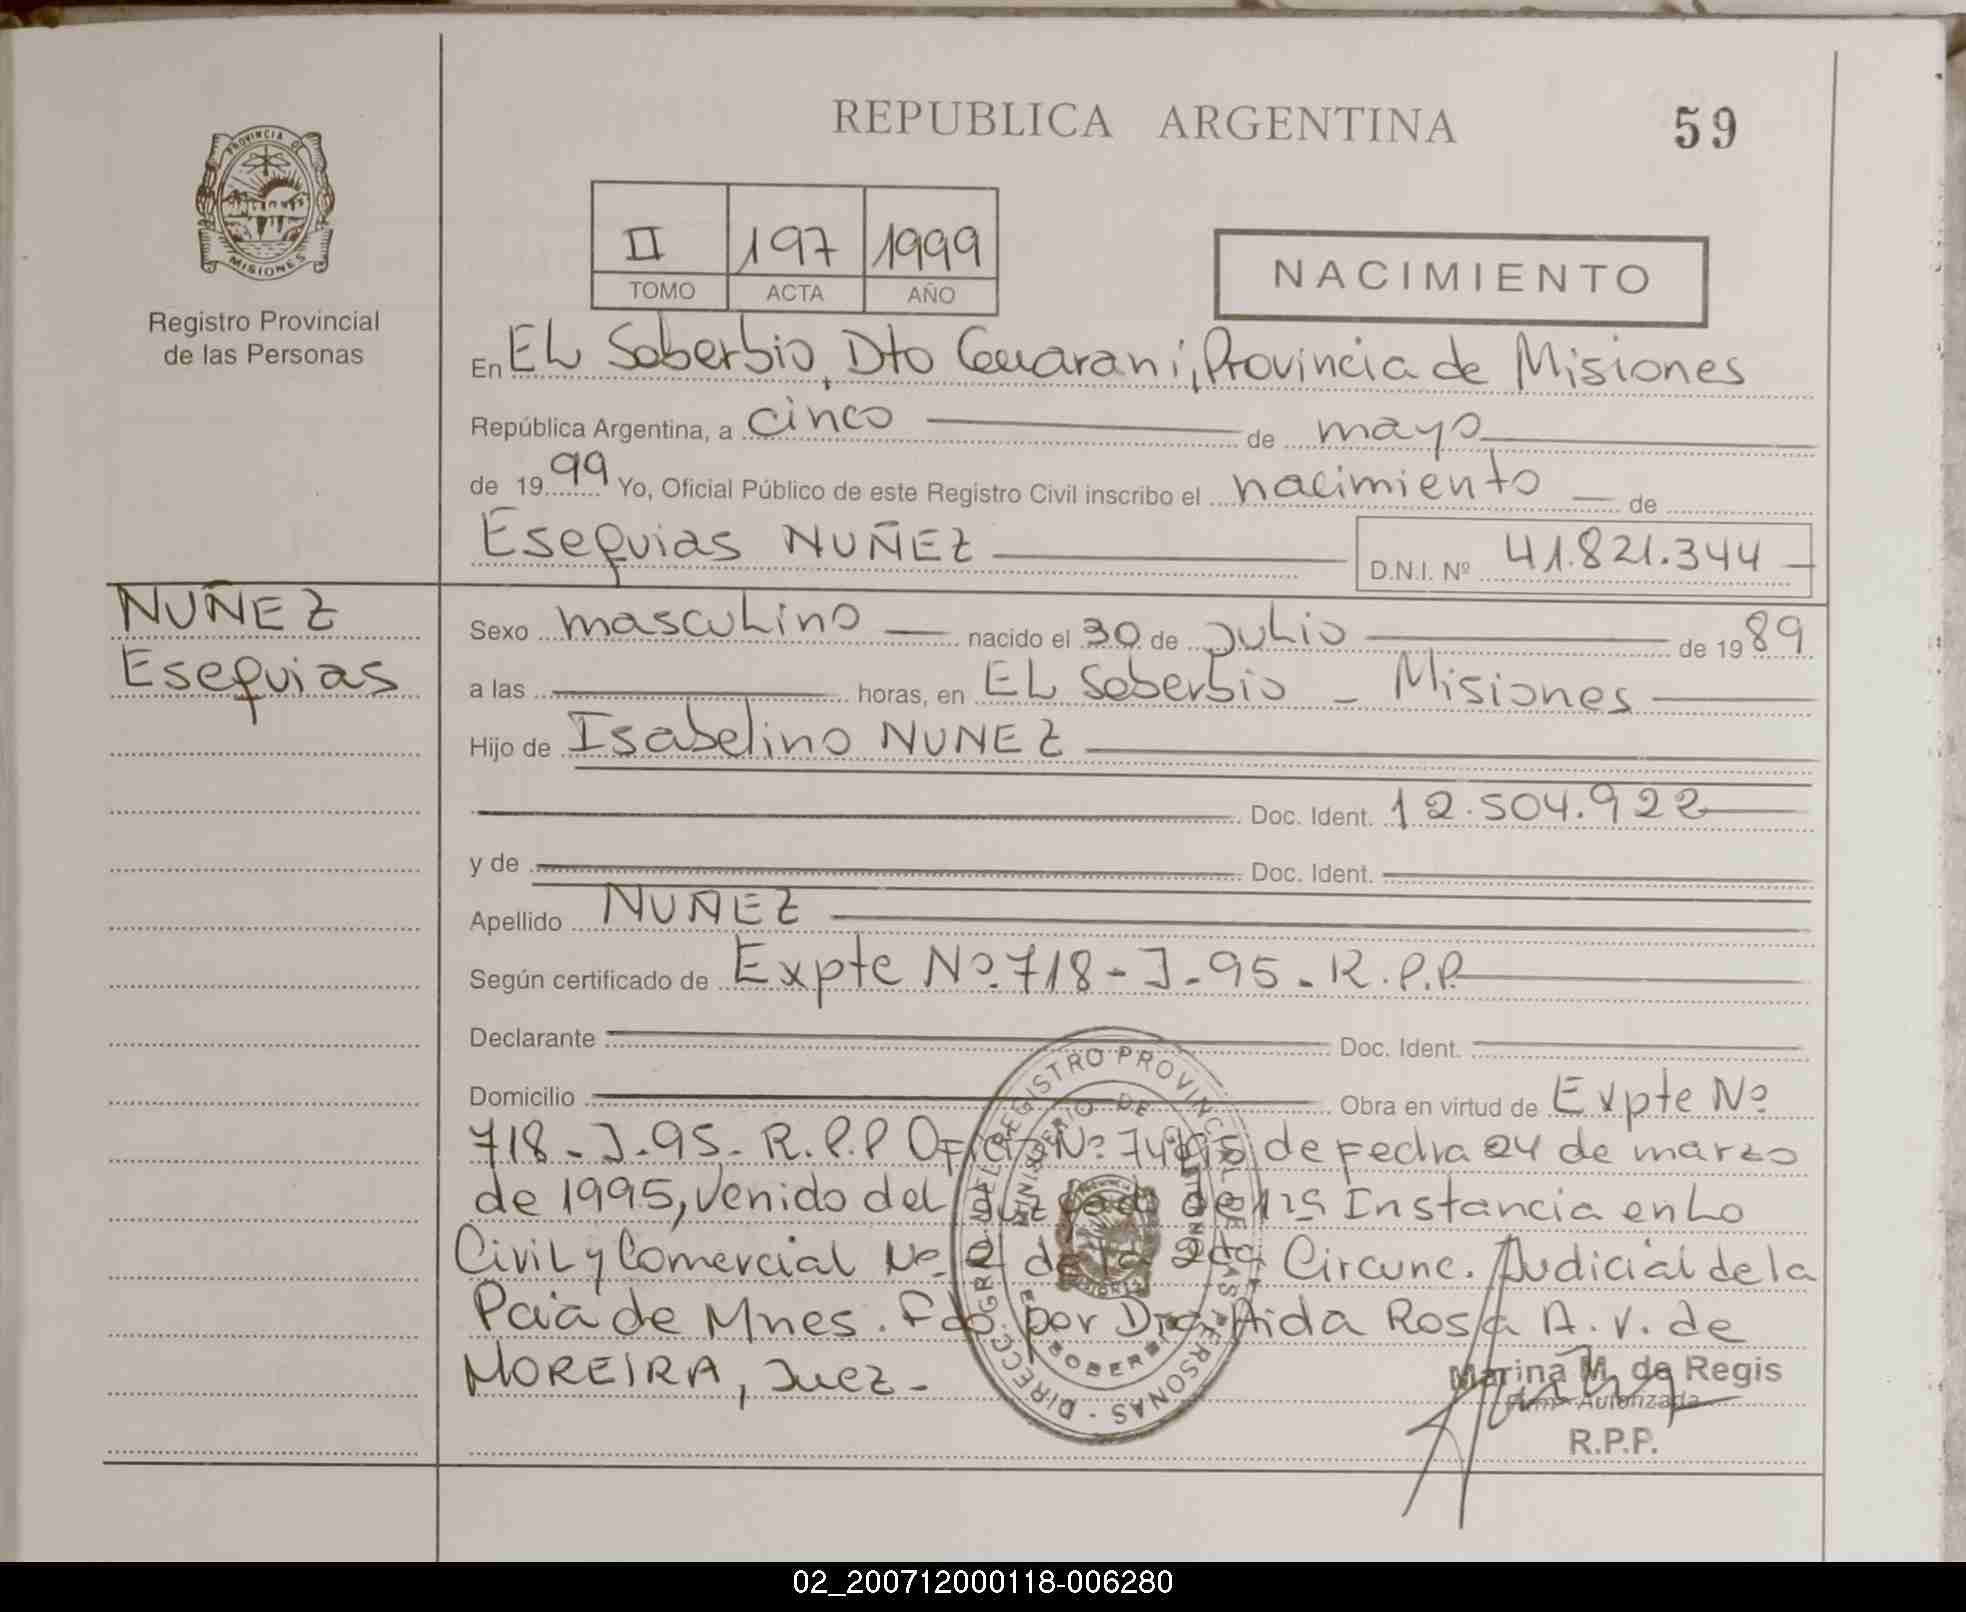 REPUBLICA ARGENTINA
59
PROVINCIA DE
MISIONES
Registro Provincial
de las Personas
II 197 1999
TOMO ACTA AÑO
NACIMIENTO
En EL Soberbio, Dto Guarani, Provincia de Misiones
República Argentina, a cinco de mayo
de 1999 Yo, Oficial Público de este Registro Civil inscribo el nacimiento de
Esequias NUÑEZ D.N.I. Nº 41.821.344
NUÑEZ
Esequias
Sexo masculino nacido el 30 de Julio de 1989
a las horas, en EL Soberbio - Misiones
Hijo de Isabelino NUNEZ
Doc. Ident. 12.504.922
y de Doc. Ident.
Apellido NUÑEZ
Según certificado de Expte Nº 718-J-95-R.P.P.
Declarante Doc. Ident.
Domicilio Obra en virtud de Expte Nº
718-J-95-R.P.P Oficio Nº de Fecha 24 de marzo
de 1995, venido del Juzgado de Instancia en Lo
Civil y Comercial No 2 de la 2da Circunc. Judicial de la
Pcia de Mnes. Fdo. por Dra. Aida Rosa A. V. de
MOREIRA, Juez-
REGISTRO PROVINCIAL DE LAS PERSONAS
MINISTERIO DE
SOBERBIO
Marina M. de Regis
Autorizada
R.P.P.
02_200712000118-006280